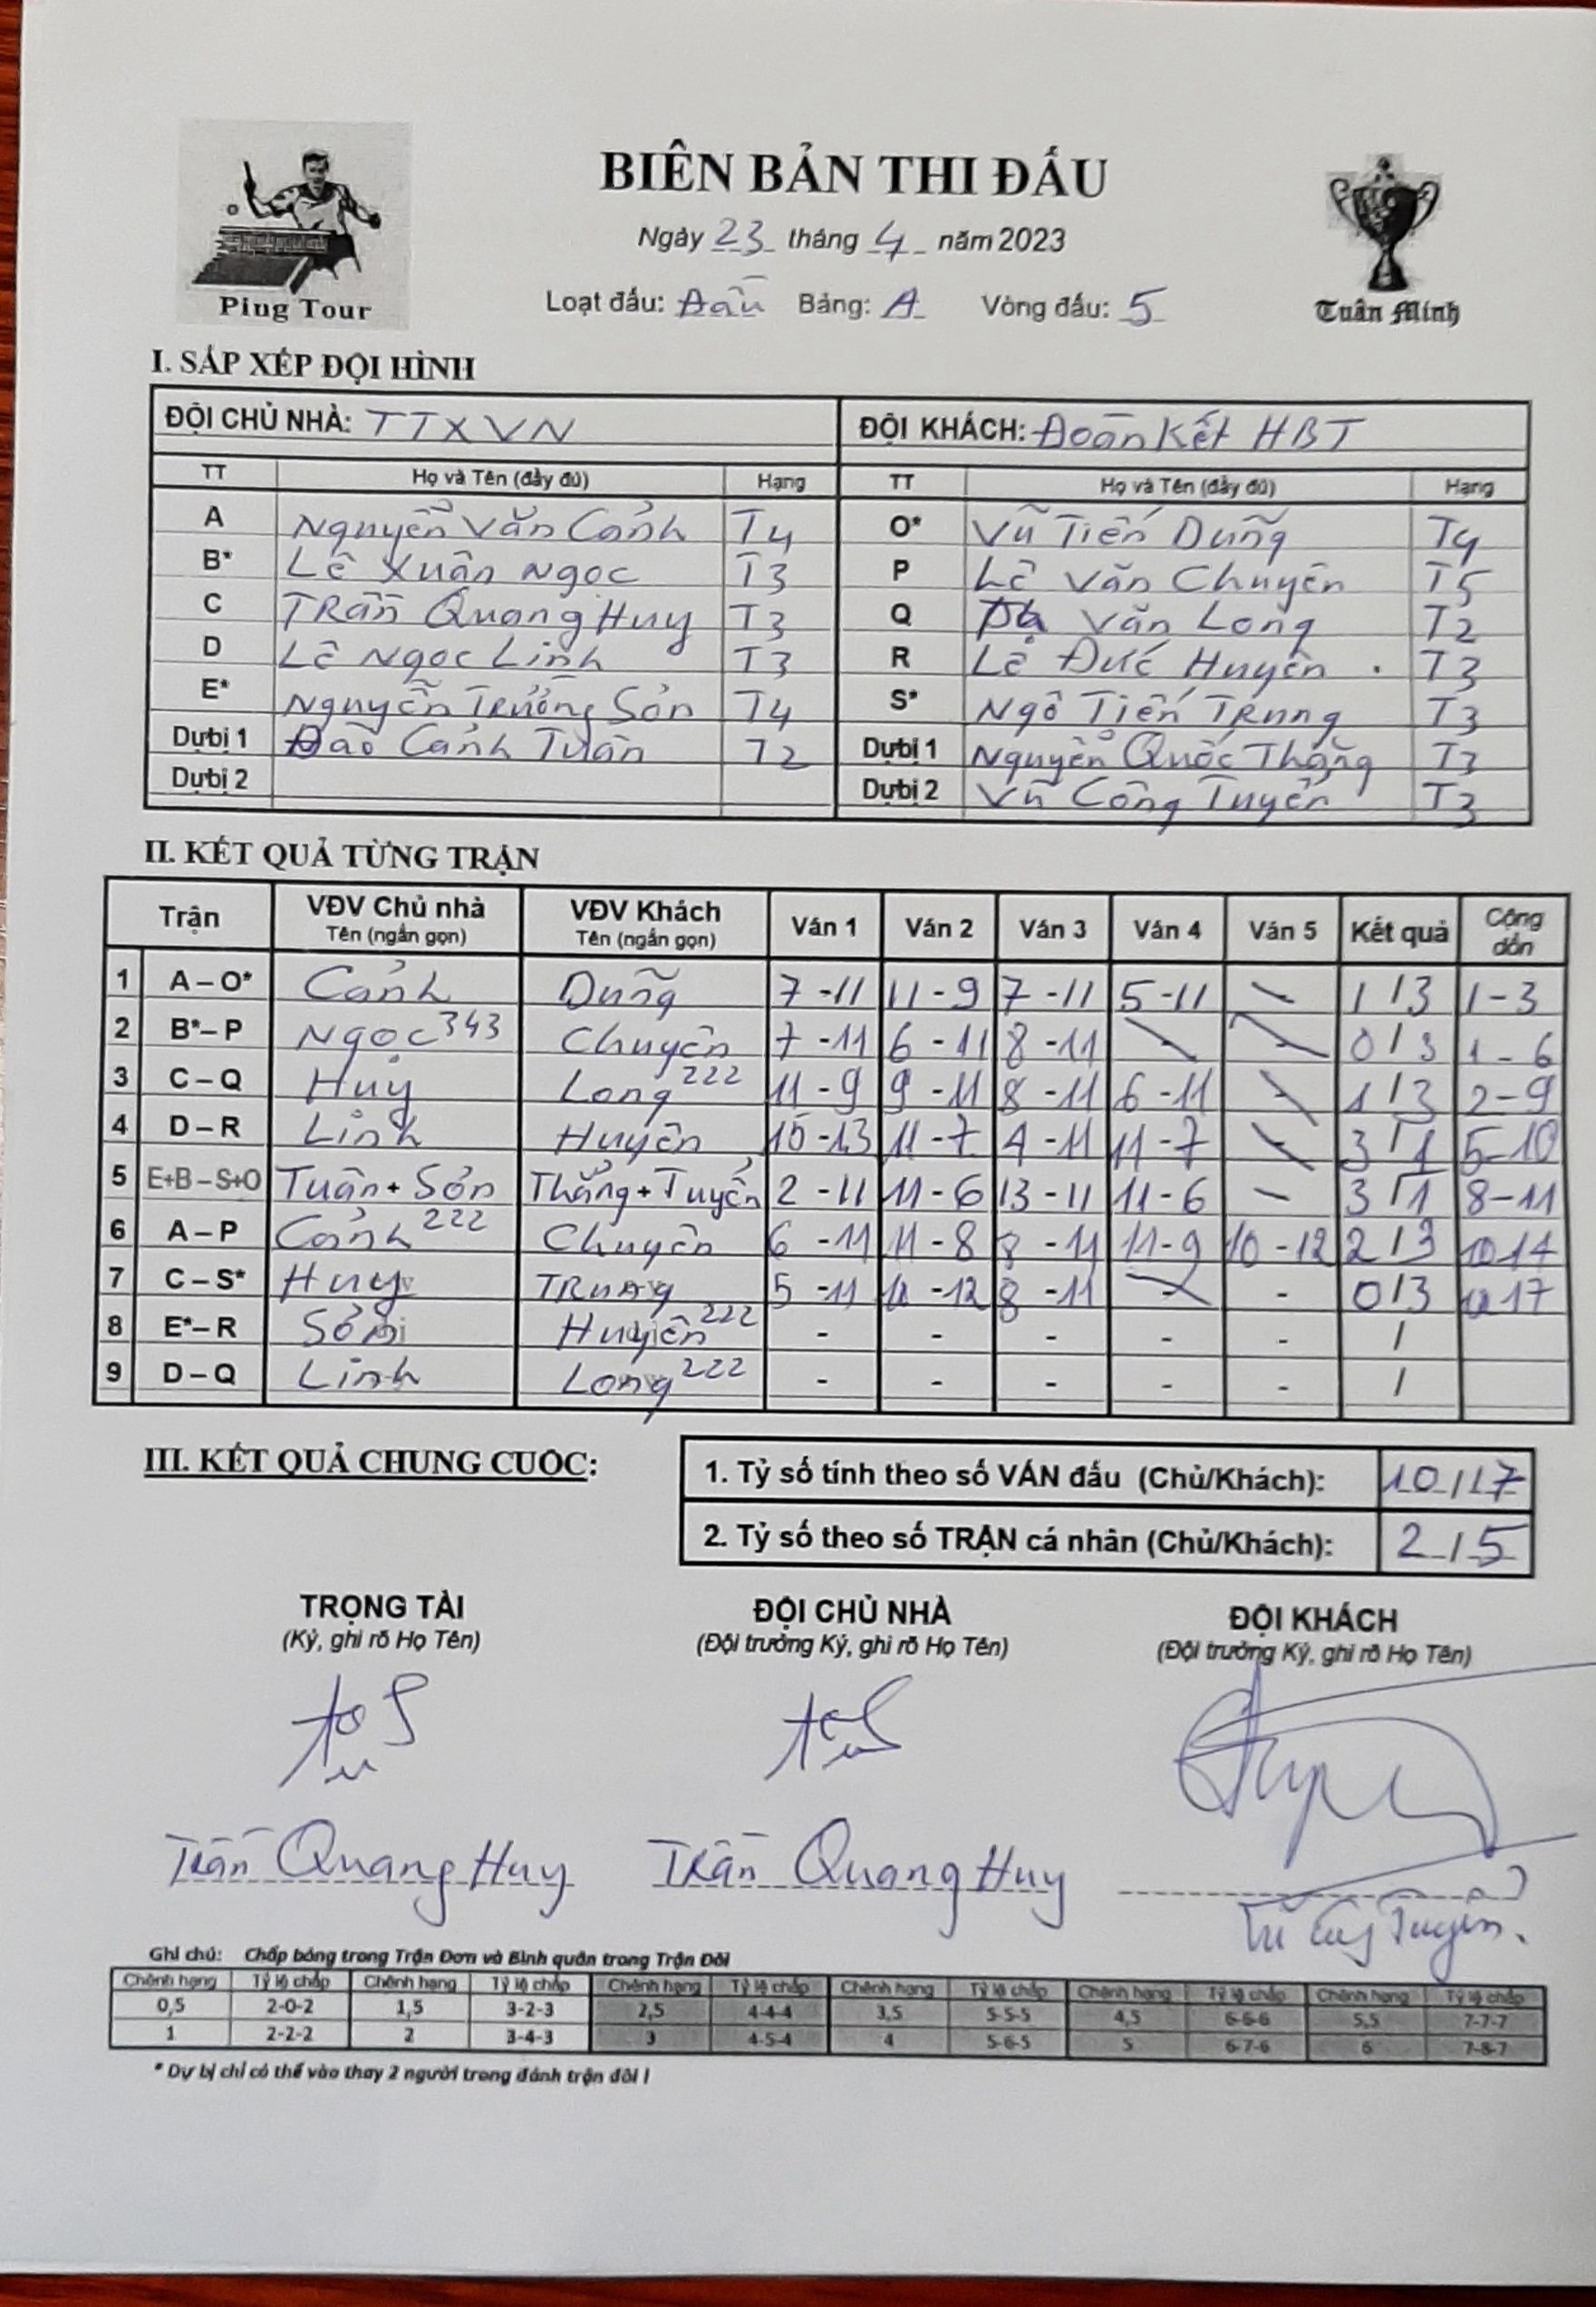 BIÊN BẢN THI ĐẤU
Ngày 23 tháng 4 năm 2023
Ping Tour
Loạt đấu: Đấu Bảng: A Vòng đấu: 5
Tuấn Minh
I. SẮP XẾP ĐỘI HÌNH
ĐỘI CHỦ NHÀ: TTXVN ĐỘI KHÁCH: Đoàn Kết HBT
TT Họ và Tên (đầy đủ) Hạng TT Họ và Tên (đầy đủ) Hạng
A Nguyễn Văn Cảnh T4 O* Vũ Tiến Dũng T4
B* Lê Xuân Ngọc T3 P Lê Văn Chuyên T5
C Trần Quang Huy T3 Q Văn Long T2
D Lê Ngọc Linh T3 R Lê Đức Huyên T3
E* Nguyễn Trường Sơn T4 S* Ngô Tiến Trung T3
Dự bị 1 Đào Cảnh Tuân T2 Dự bị 1 Nguyễn Quốc Thắng T3
Dự bị 2 Dự bị 2 Vũ Công Tuyển T3
II. KẾT QUẢ TỪNG TRẬN
Trận VĐV Chủ nhà Tên (ngắn gọn) VĐV Khách Tên (ngắn gọn) Ván 1 Ván 2 Ván 3 Ván 4 Ván 5 Kết quả Cộng dồn
1 A – O* Cảnh Dũng 7 - 11 11 - 9 7 - 11 5 - 11 1 / 3 1 - 3
2 B* – P Ngọc 343 Chuyên 7 - 11 6 - 11 8 - 11 0 / 3 1 - 6
3 C – Q Huy Long 222 11 - 9 9 - 11 8 - 11 6 - 11 1 / 3 2 - 9
4 D – R Linh Huyên - 13 11 - 7 4 - 11 11 - 7 3 / 1 5 - 10
5 E+B – S+O Tuân + Sơn Thắng + Tuyển 2 - 11 11 - 6 13 - 11 11 - 6 - 3 / 1 8 - 11
6 A – P Cảnh 222 Chuyên 6 - 11 11 - 8 8 - 11 11 - 9 10 - 12 2 / 3 10 14
7 C – S* Huy Trung 5 - 11 - 12 8 - 11 - 0 / 3 17
8 E* – R Sơn Huyên 222 - - - - - /
9 D – Q Linh Long 222 - - - - - /
III. KẾT QUẢ CHUNG CUỘC:
1. Tỷ số tính theo số VÁN đấu (Chủ/Khách): 10 / 17
2. Tỷ số theo số TRẬN cá nhân (Chủ/Khách): 2 / 5
TRỌNG TÀI ĐỘI CHỦ NHÀ ĐỘI KHÁCH
(Ký, ghi rõ Họ Tên) (Đội trưởng Ký, ghi rõ Họ Tên) (Đội trưởng Ký, ghi rõ Họ Tên)
Trần Quang Huy Trần Quang Huy
Ghi chú: Chấp bóng trong Trận Đơn và Bình quân trong Trận Đôi
Chênh hạng Tỷ lệ chấp Chênh hạng Tỷ lệ chấp Chênh hạng Tỷ lệ chấp Chênh hạng Tỷ lệ chấp Chênh hạng Tỷ lệ chấp Chênh hạng Tỷ lệ chấp
0,5 2-0-2 1,5 3-2-3 2,5 4-4-4 3,5 5-5-5 4,5 6-6-6 5,5 7-7-7
1 2-2-2 2 3-4-3 3 4-5-4 4 5-6-5 5 6-7-6 6 7-8-7
* Dự bị chỉ có thể vào thay 2 người trong đánh trận đôi !